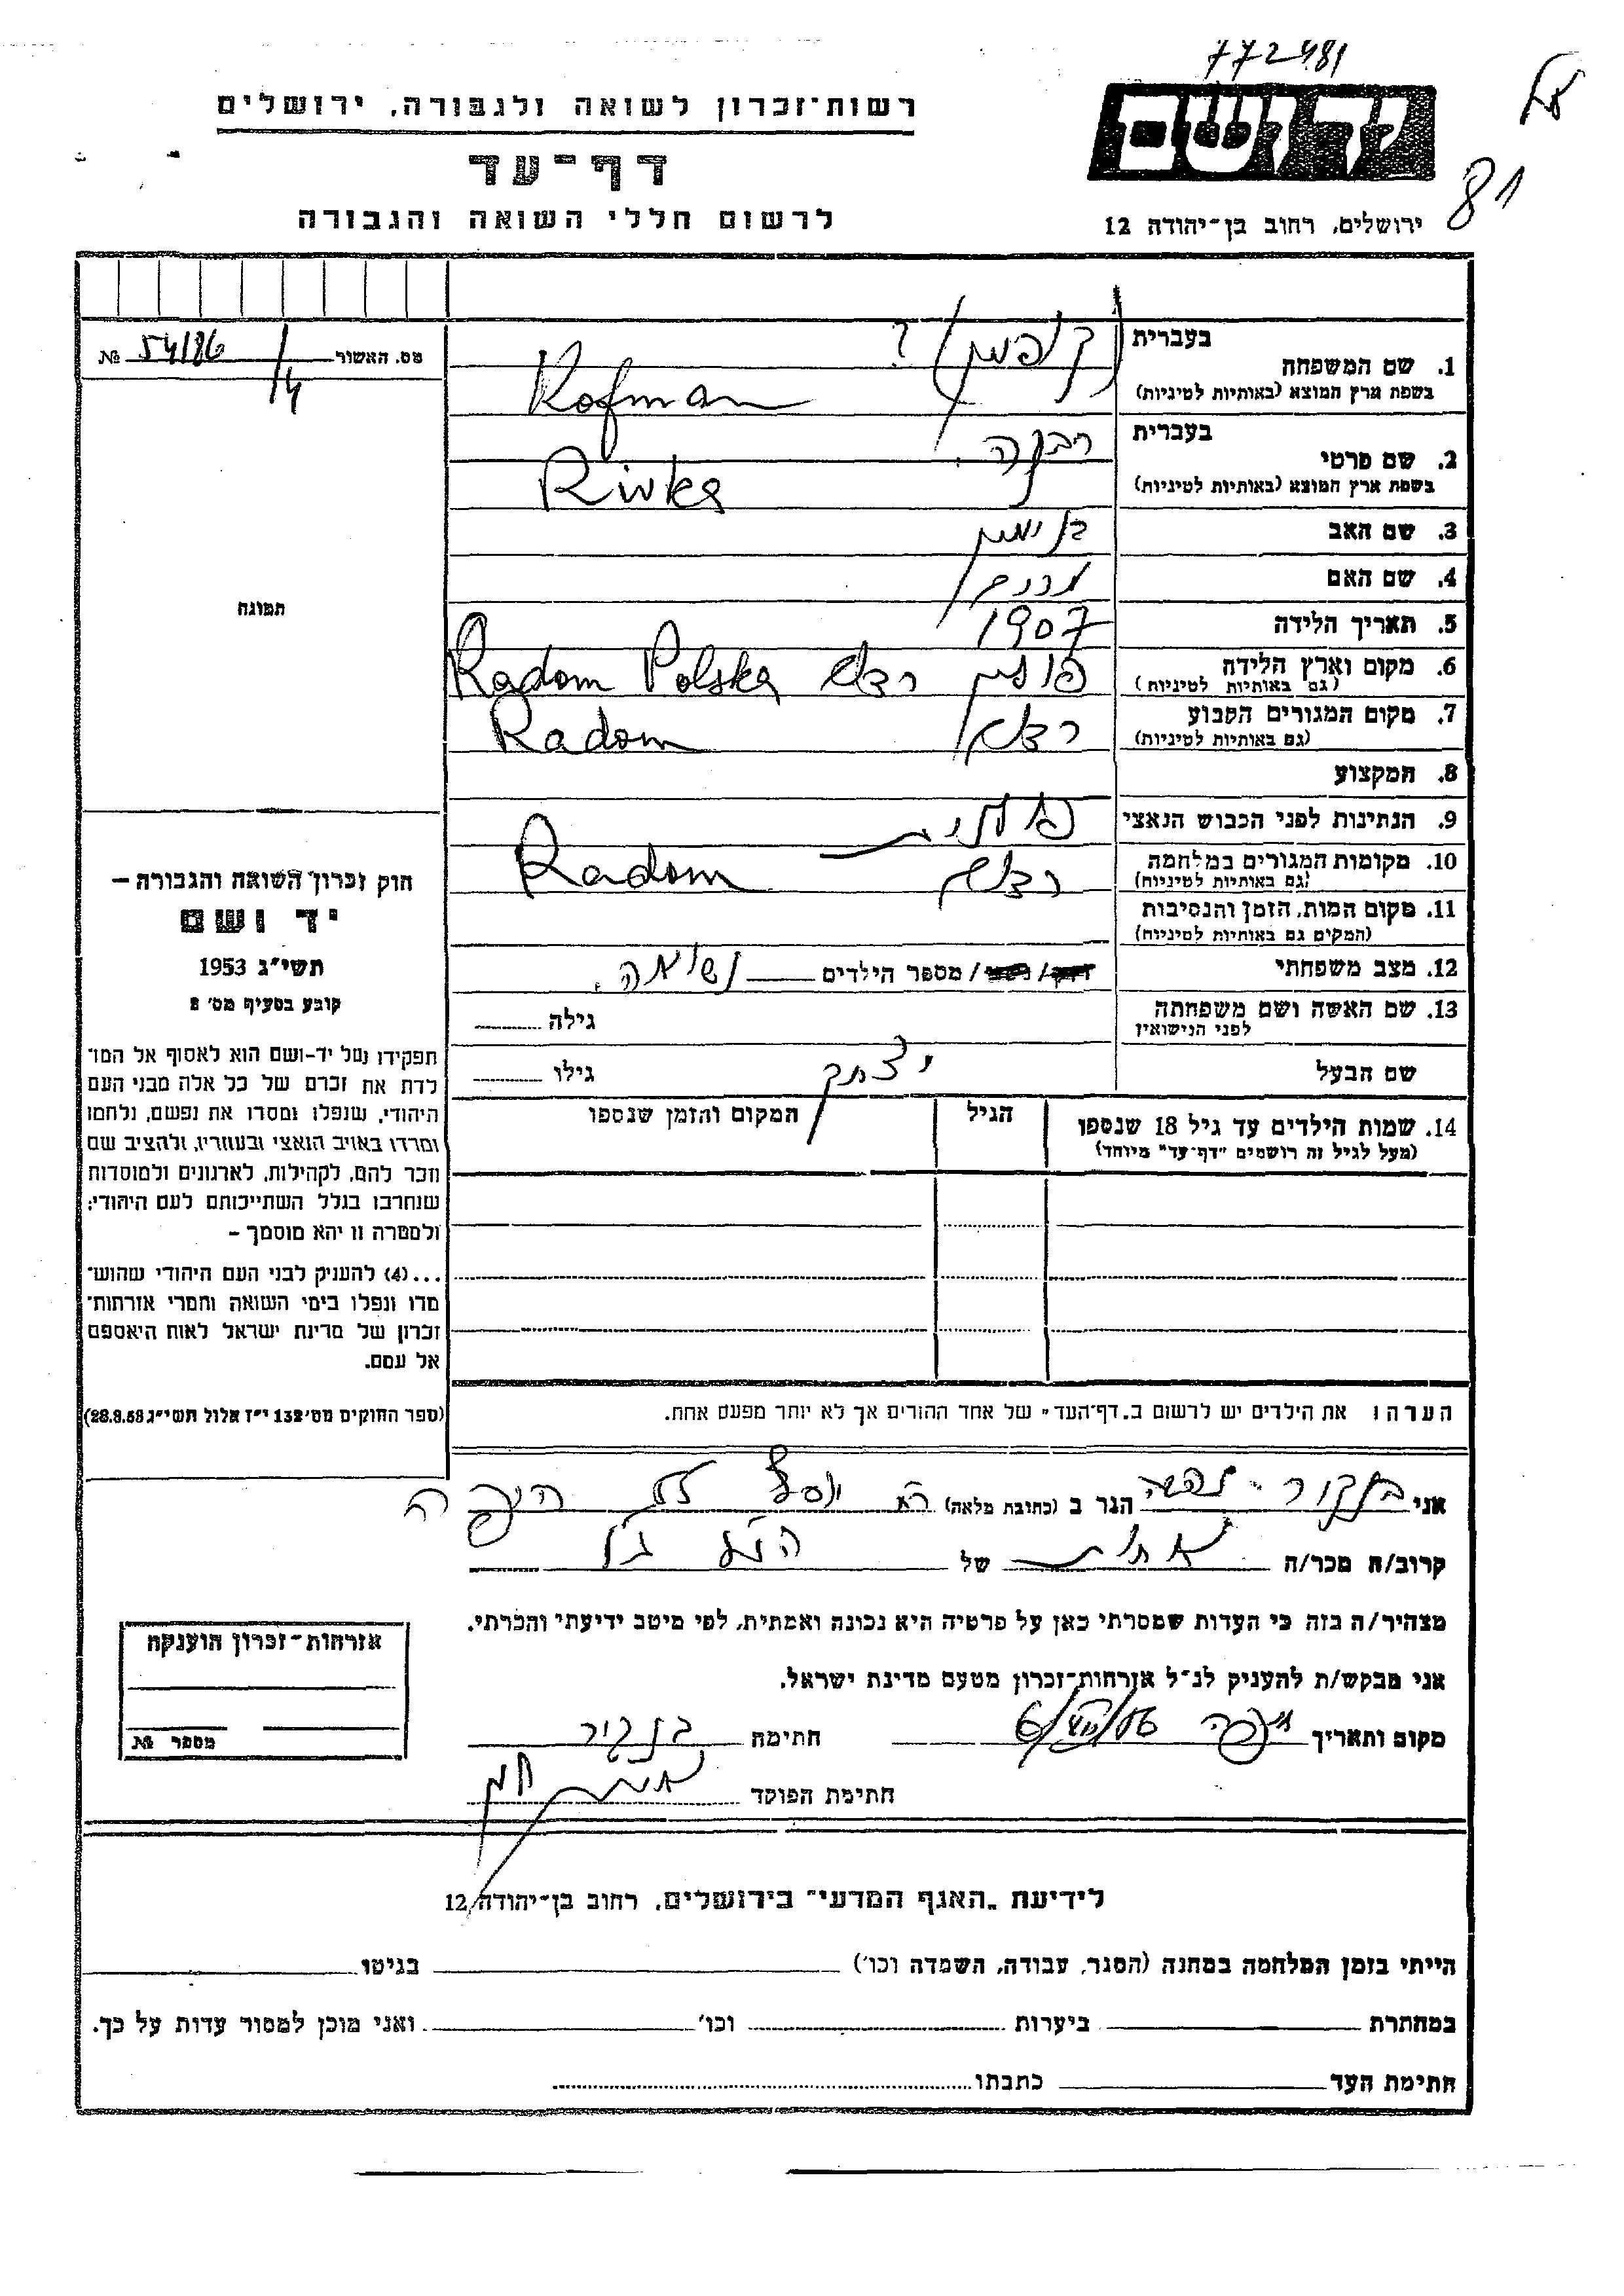 772481
81
יד ושם
רשות־זכרון לשואה ולגבורה, ירושלים
דף־עד
לרשום חללי השואה והגבורה
ירושלים, רחוב בן־יהודה 12
מס. האשור 54/86 №
/4
1. שם המשפחה
בעברית (קופמן) ?
בשפת ארץ המוצא (באותיות לטיניות) Kofman
2. שם פרטי
בעברית רבקה
בשפת ארץ המוצא (באותיות לטיניות) Rivka
3. שם האב בנימין
4. שם האם מרים
5. תאריך הלידה 1907
6. מקום וארץ הלידה (גם באותיות לטיניות) פולין רדום Radom Polska
7. מקום המגורים הקבוע (גם באותיות לטיניות) רדום Radom
8. המקצוע
9. הנתינות לפני הכבוש הנאצי פולנית
10. מקומות המגורים במלחמה (גם באותיות לטיניות) רדום Radom
11. מקום המות, הזמן והנסיבות (המקום גם באותיות לטיניות)
12. מצב משפחתי רווק/ נשוי/ מספר הילדים נשואה.
13. שם האשה ושם משפחתה לפני הנישואין גילה
שם הבעל יצחק גילו
14. שמות הילדים עד גיל 18 שנספו
(מעל לגיל זה רושמים "דף־עד" מיוחד)
הגיל
המקום והזמן שנספו
הערה: את הילדים יש לרשום ב„דף־העד" של אחד ההורים אך לא יותר מפעם אחת.
תמונה
חוק זכרון השואה והגבורה –
יד ושם
תשי"ג 1953
קובע בסעיף מס' 2
תפקידו של יד-ושם הוא לאסוף אל המו־
לדת את זכרם של כל אלה מבני העם
היהודי, שנפלו ומסרו את נפשם, נלחמו
ומרדו באויב הנאצי ובעוזריו, ולהציב שם
וזכר להם, לקהילות, לארגונים ולמוסדות
שנחרבו בגלל השתייכותם לעם היהודי;
ולמטרה זו יהא מוסמך –
...(4) להעניק לבני העם היהודי שהוש־
מדו ונפלו בימי השואה והמרי אזרחות־
זכרון של מדינת ישראל לאות היאספם
אל עמם.
(ספר החוקים מס' 132 י"ז אלול תשי"ג 28.8.53)
אני הגר ב (כתובת מלאה) חיפה
קרוב/ה מכר/ה אחות של הנ"ל
מצהיר/ה בזה כי העדות שמסרתי כאן על פרטיה היא נכונה ואמתית, לפי מיטב ידיעתי והכרתי.
אני מבקש/ת להעניק לנ"ל אזרחות־זכרון מטעם מדינת ישראל.
מקום ותאריך חיפה חתימה
חתימת הפוקד
אזרחות־זכרון הוענקה
מספר №
לידיעת „האגף המדעי" בירושלים, רחוב בן־יהודה 12
הייתי בזמן המלחמה במחנה (הסגר, עבודה, השמדה וכו') בגיטו
במחתרת ביערות וכו' ואני מוכן למסור עדות על כך.
חתימת העד כתבתו